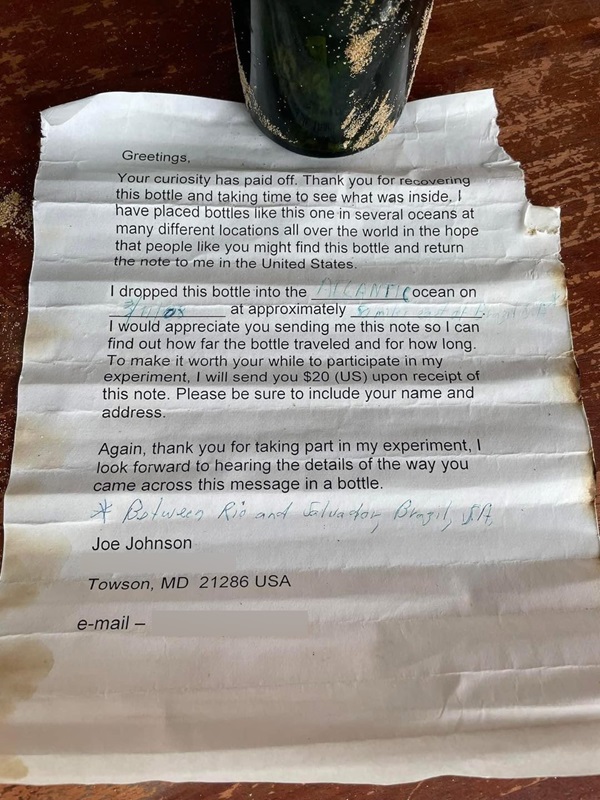 Greetings,
Your curiosity has paid off. Thank you for recovering
this bottle and taking time to see what was inside. I
have placed bottles like this one in several oceans at
many different locations all over the world in the hope
that people like you might find this bottle and return
the note to me in the United States.
I dropped this bottle into the ATLANTIC ocean on
at approximately
I would appreciate you sending me this note so I can
find out how far the bottle traveled and for how long.
To make it worth your while to participate in my
experiment, I will send you $20 (US) upon receipt of
this note. Please be sure to include your name and
address.
Again, thank you for taking part in my experiment, I
look forward to hearing the details of the way you
came across this message in a bottle.
* Between Rio and Salvador, Brazil, S.A.
Joe Johnson
Towson, MD 21286 USA
e-mail –